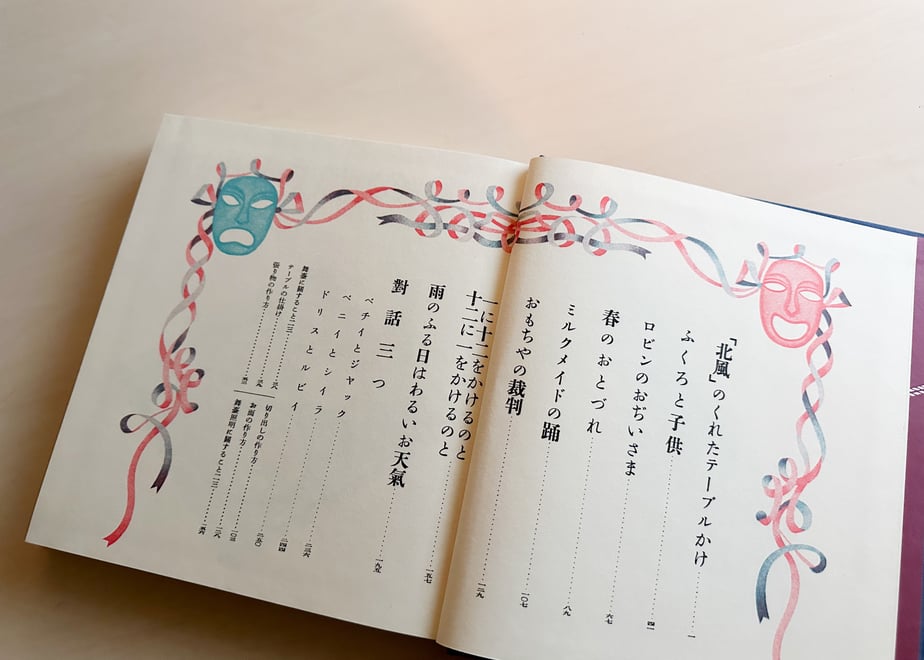 「北風」のくれたテーブルかけ……一
ふくろと子供
ロビンのおぢいさま……四一
春のおとづれ……六七
ミルクメイドの踊……八九
おもちやの裁判……一〇七
一に十二をかけるのと
十二に一をかけるのと……一二九
雨のふる日はわるいお天氣……一五七
對話三つ……一九五
ベチイとジャック
ベニイとシイラ
ドリスとルビイ……二三六
舞臺に關すること二三
テーブルの仕掛け
張り物の作り方
切り出しの作り方……二五〇
お面の作り方……一〇三
舞臺照明に關すること二三